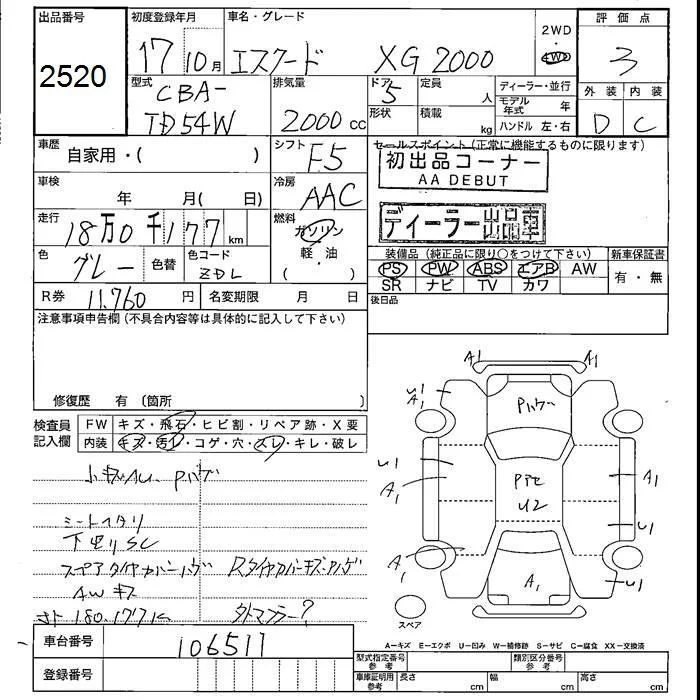 出品番号
2520
初度登録年月
17 10月
車名・グレード
エスクード XG 2000
2WD
・
4WD
評価点
3
型式
CBA-
TD54W
排気量
2000 cc
ドア
5
形状
定員
人
積載
kg
ディーラー・並行
モデル年式 年
ハンドル 左・右
外装 内装
D C
車歴
自家用・( )
シフト
F5
セールスポイント(正常に機能するものに限ります)
初出品コーナー
AA DEBUT
車検
年 月( 日)
冷房
AAC
走行
18万0千177 km
燃料
ガソリン
軽・油
( )
ディーラー出品車
色
グレー
色替
色コード
ZDL
装備品(純正品に限り○をつけて下さい)
PS PW ABS エアB AW
SR ナビ TV カワ
新車保証書
有・無
R券 11,760 円
名変期限 月 日
後日品
注意事項申告欄(不具合内容等は具体的に記入して下さい)
修復歴 有 (箇所 )
検査員
記入欄
FW キズ・飛石・ヒビ割・リペア跡・X要
内装 キズ・汚レ・コゲ・穴・スレ・キレ・破レ
シートヘタリ
下廻りSC
スペアタイヤカバーハゲ
AWキズ
A1 A1
U1
A1
A1
U1
A1
A1
U1
A1
U1
U2
A1
スペア
A=キズ E=エクボ U=凹み W=補修跡 S=サビ C=腐食 XX=交換済
車台番号
106511
登録番号
型式指定番号
参考
類別区分番号
参考
車庫証明用
参考
長さ cm 幅 cm 高さ cm